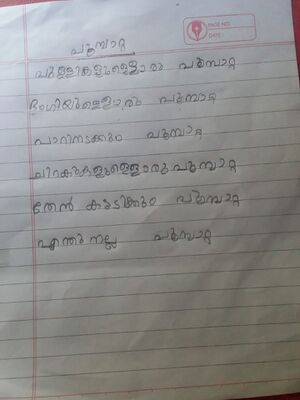 PAGE NO.
DATE
പൂമ്പാറ്റ
പുള്ളികളുള്ളൊരു പൂമ്പാറ്റ
ഭംഗിയുള്ളൊരു പൂമ്പാറ്റ
പാറിനടക്കും പൂമ്പാറ്റ
ചിറകുകളുള്ളൊരു പൂമ്പാറ്റ
തേൻ കുടിക്കും പൂമ്പാറ്റ
എന്തു നല്ല പൂമ്പാറ്റ